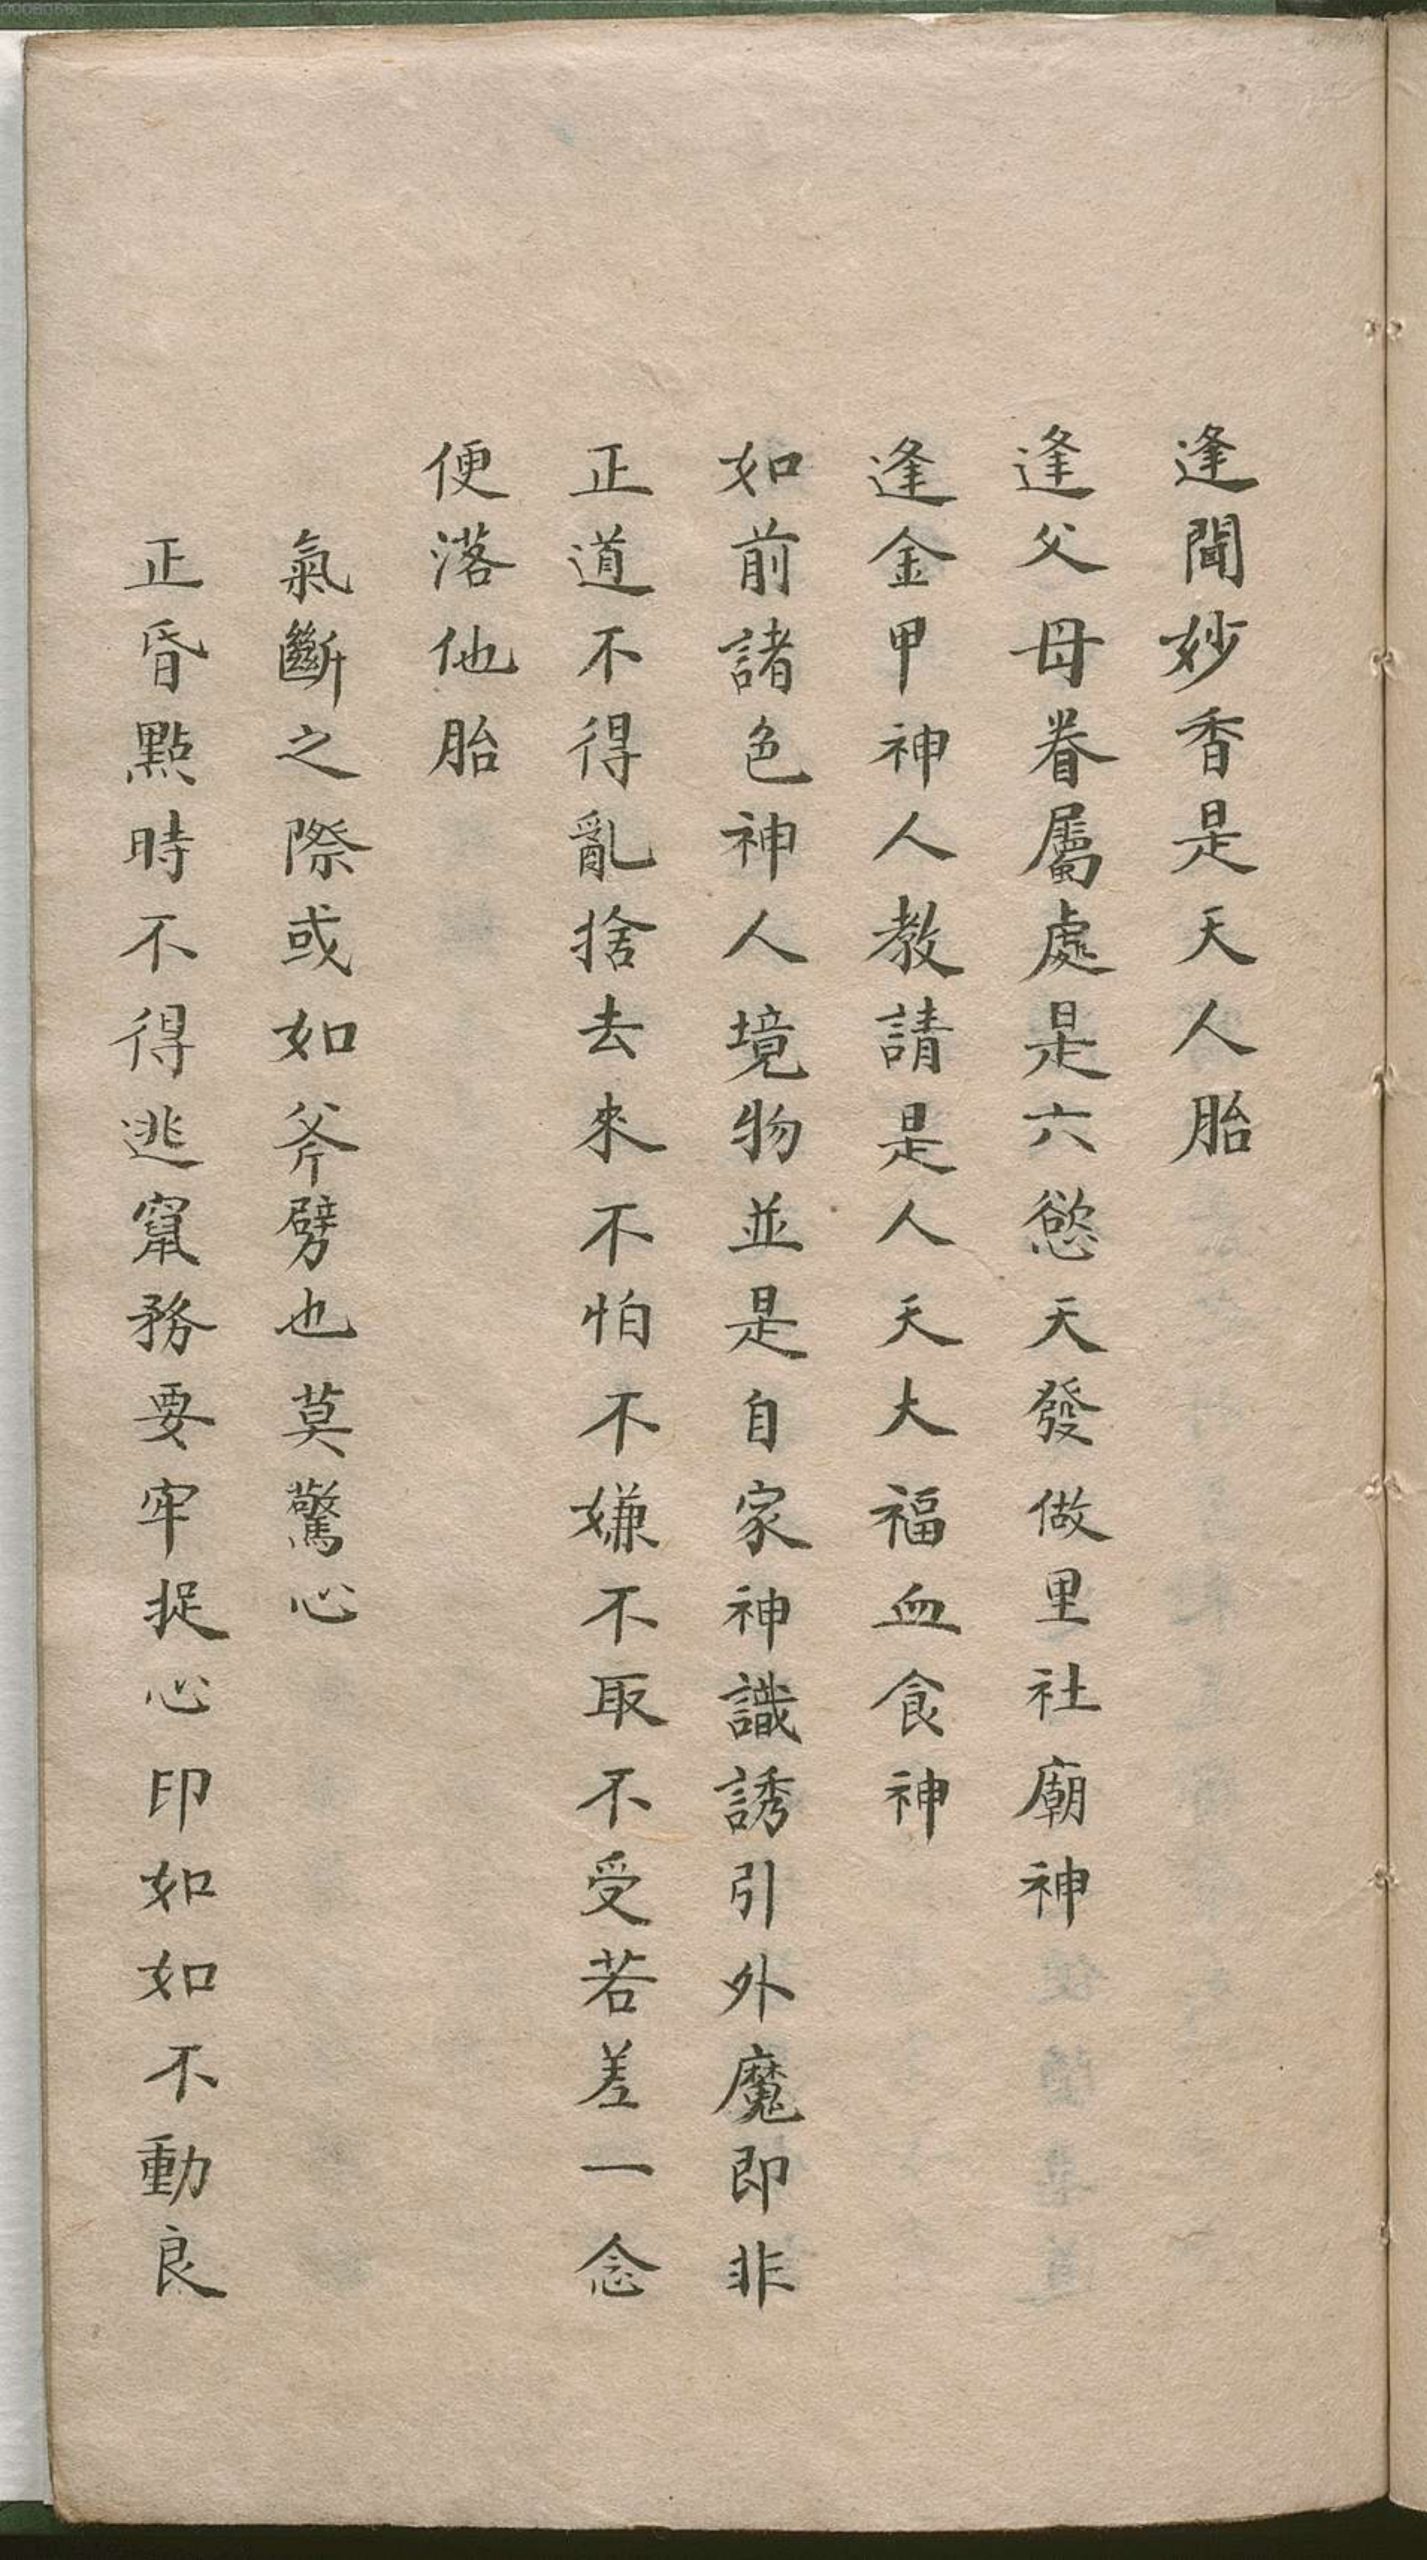 逢聞妙香是天人胎
逢父母眷屬處是六慾天發做里社廟神
逢金甲神人教請是人天大福血食神
如前諸色神人境物並是自家神識誘引外魔即非
正道不得亂捨去來不怕不嫌不取不受若差一念
便落他胎
氣斷之際或如斧劈也莫驚心
正昏點時不得逃竄務要牢捉心印如如不動良